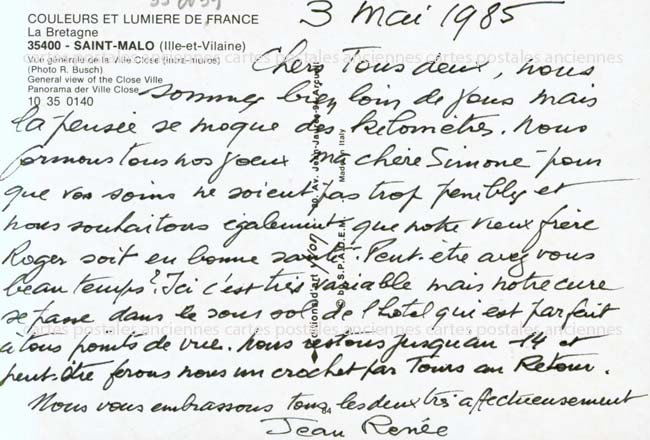 COULEURS ET LUMIERE DE FRANCE
La Bretagne
35400 - SAINT-MALO (Ille-et-Vilaine)
Vue générale de la Ville Close (intra-muros)
(Photo R. Busch)
General view of the Close Ville
Panorama der Ville Close
10 35 0140
3 Mai 1985
Chers Tous deux, nous
sommes bien loin de vous mais
la pensée se moque des kilomètres. Nous
formons tous nos voeux ma chère Simone pour
que vos soins ne soient pas trop penibles et
nous souhaitons également que notre vieux frère
Roger soit en bonne santé. Peut-être avez vous
beau temps? Ici c'est très variable mais notre cure
se passe dans le sous sol de l'hotel qui est parfait
à tous points de vue. Nous restons jusqu'au 14 et
peut-être ferons nous un crochet par Tours au Retour.
Nous vous embrassons tous les deux très affectueusement
Jean Renée
Editions d'art yvon
Av. Jean-Jaurès
Made in Italy
© by S.P.A.D.E.M.
cartes postales anciennes cartes postales anciennes cartes postales anciennes
cartes postales anciennes cartes postales anciennes cartes postales anciennes